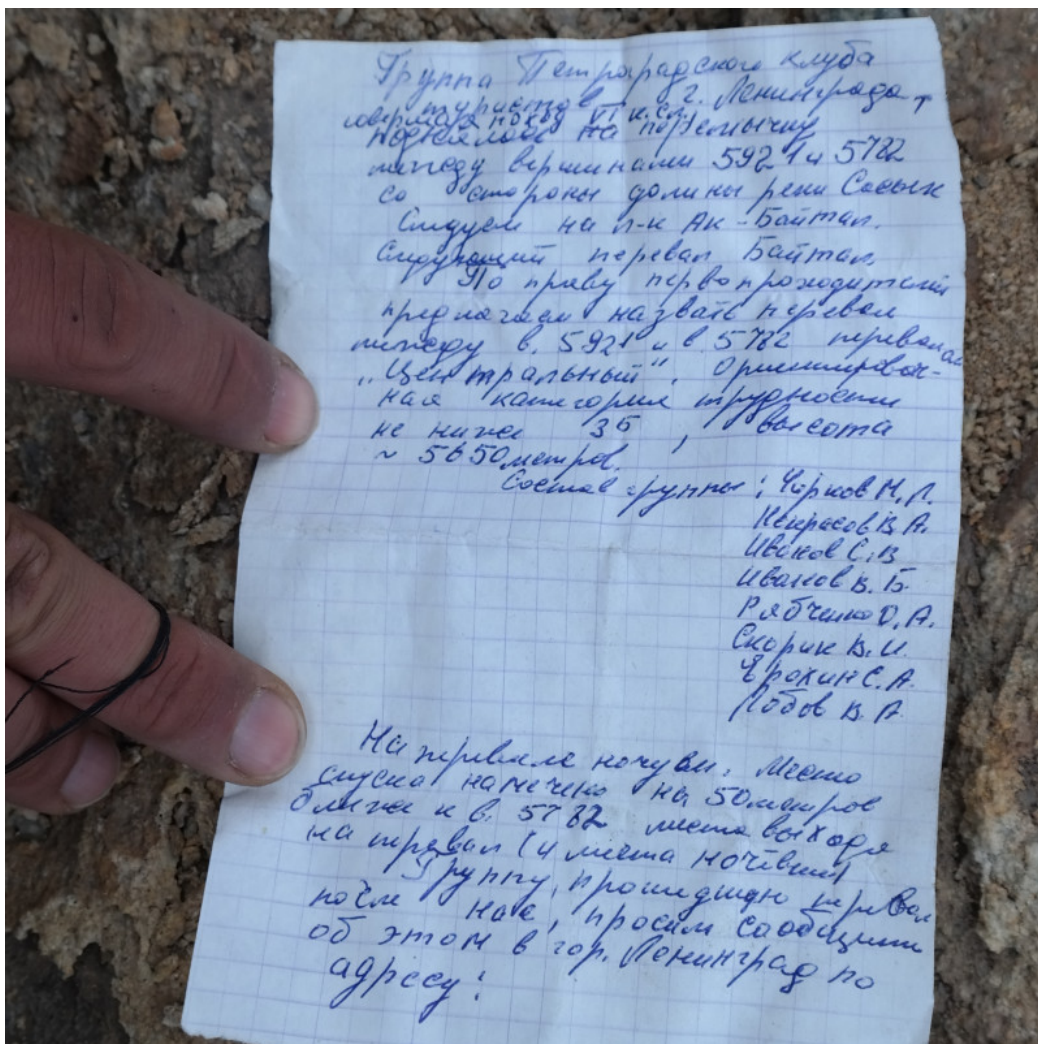 Группа Петроградского клуба
туристов г. Ленинграда,
совершая поход VI к.сл.
поднялась на перемычку
между вершинами 5921 и 5782
со стороны долины реки Сасык
Следуем на л-к Ак-Байтал.
Следующий перевал Байтал.
По праву первопроходителей
предлагаем назвать перевал
между в. 5921 и в. 5782 перевалом
„Центральный". Ориентировоч-
ная категория трудности
не ниже 3Б, высота
~ 5650 метров.
Состав группы: Чирков Н.Л.
Некрасов В.А.
Иванов С.В
Иванов В.Б.
Рябченко О.А.
Скорик В.И.
Ерохин С.А.
Лобов В.А.
На перевале ночуем. Место
спуска намечено на 50 метров
ближе к в. 5782 места выхода
на перевал (и места ночёвки)
Группу, прошедшую перевал
после нас, просим сообщить
об этом в гор. Ленинград по
адресу: